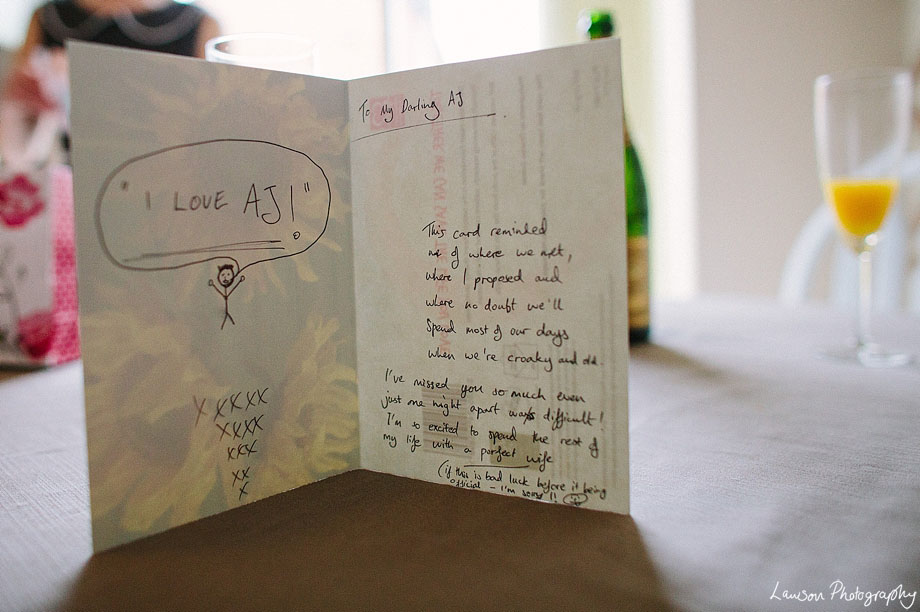 "I LOVE AJ!"
x x x x x
x x x x
x x x
x x
x
To My Darling AJ
This card reminded
me of where we met,
where I proposed and
where no doubt we'll
spend most of our days
when we're croaky and old.
I've missed you so much even
just one night apart was difficult!
I'm so excited to spend the rest of
my life with a perfect wife
(if this is bad luck before it being
official - I'm sorry!!
Lawson Photography